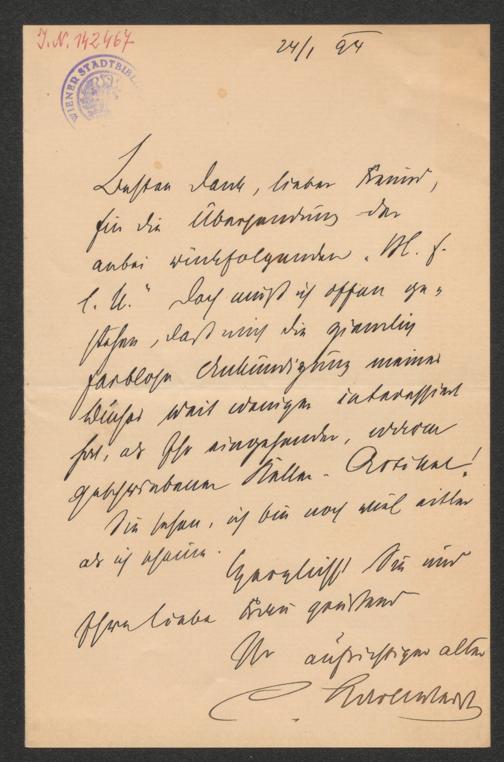 J.N. 142467
WIENER STADTBIBL
24/1 94
Besten Dank, lieber Freund,
für die Übersendung der
anbei rückfolgenden „M. f.
L. U." Doch muß ich offen ge-
stehen, daß mich die ziemlich
farblose Ankündigung meines
Buches weit weniger interessiert
hat, als Ihr eingehender, warm
geschriebener Keller-Artikel!
Sie sehen, ich bin noch viel eitler
als ich scheine.
Herzlichst Sie und
Ihre liebe Frau grüßend
Ihr aufrichtiger alter